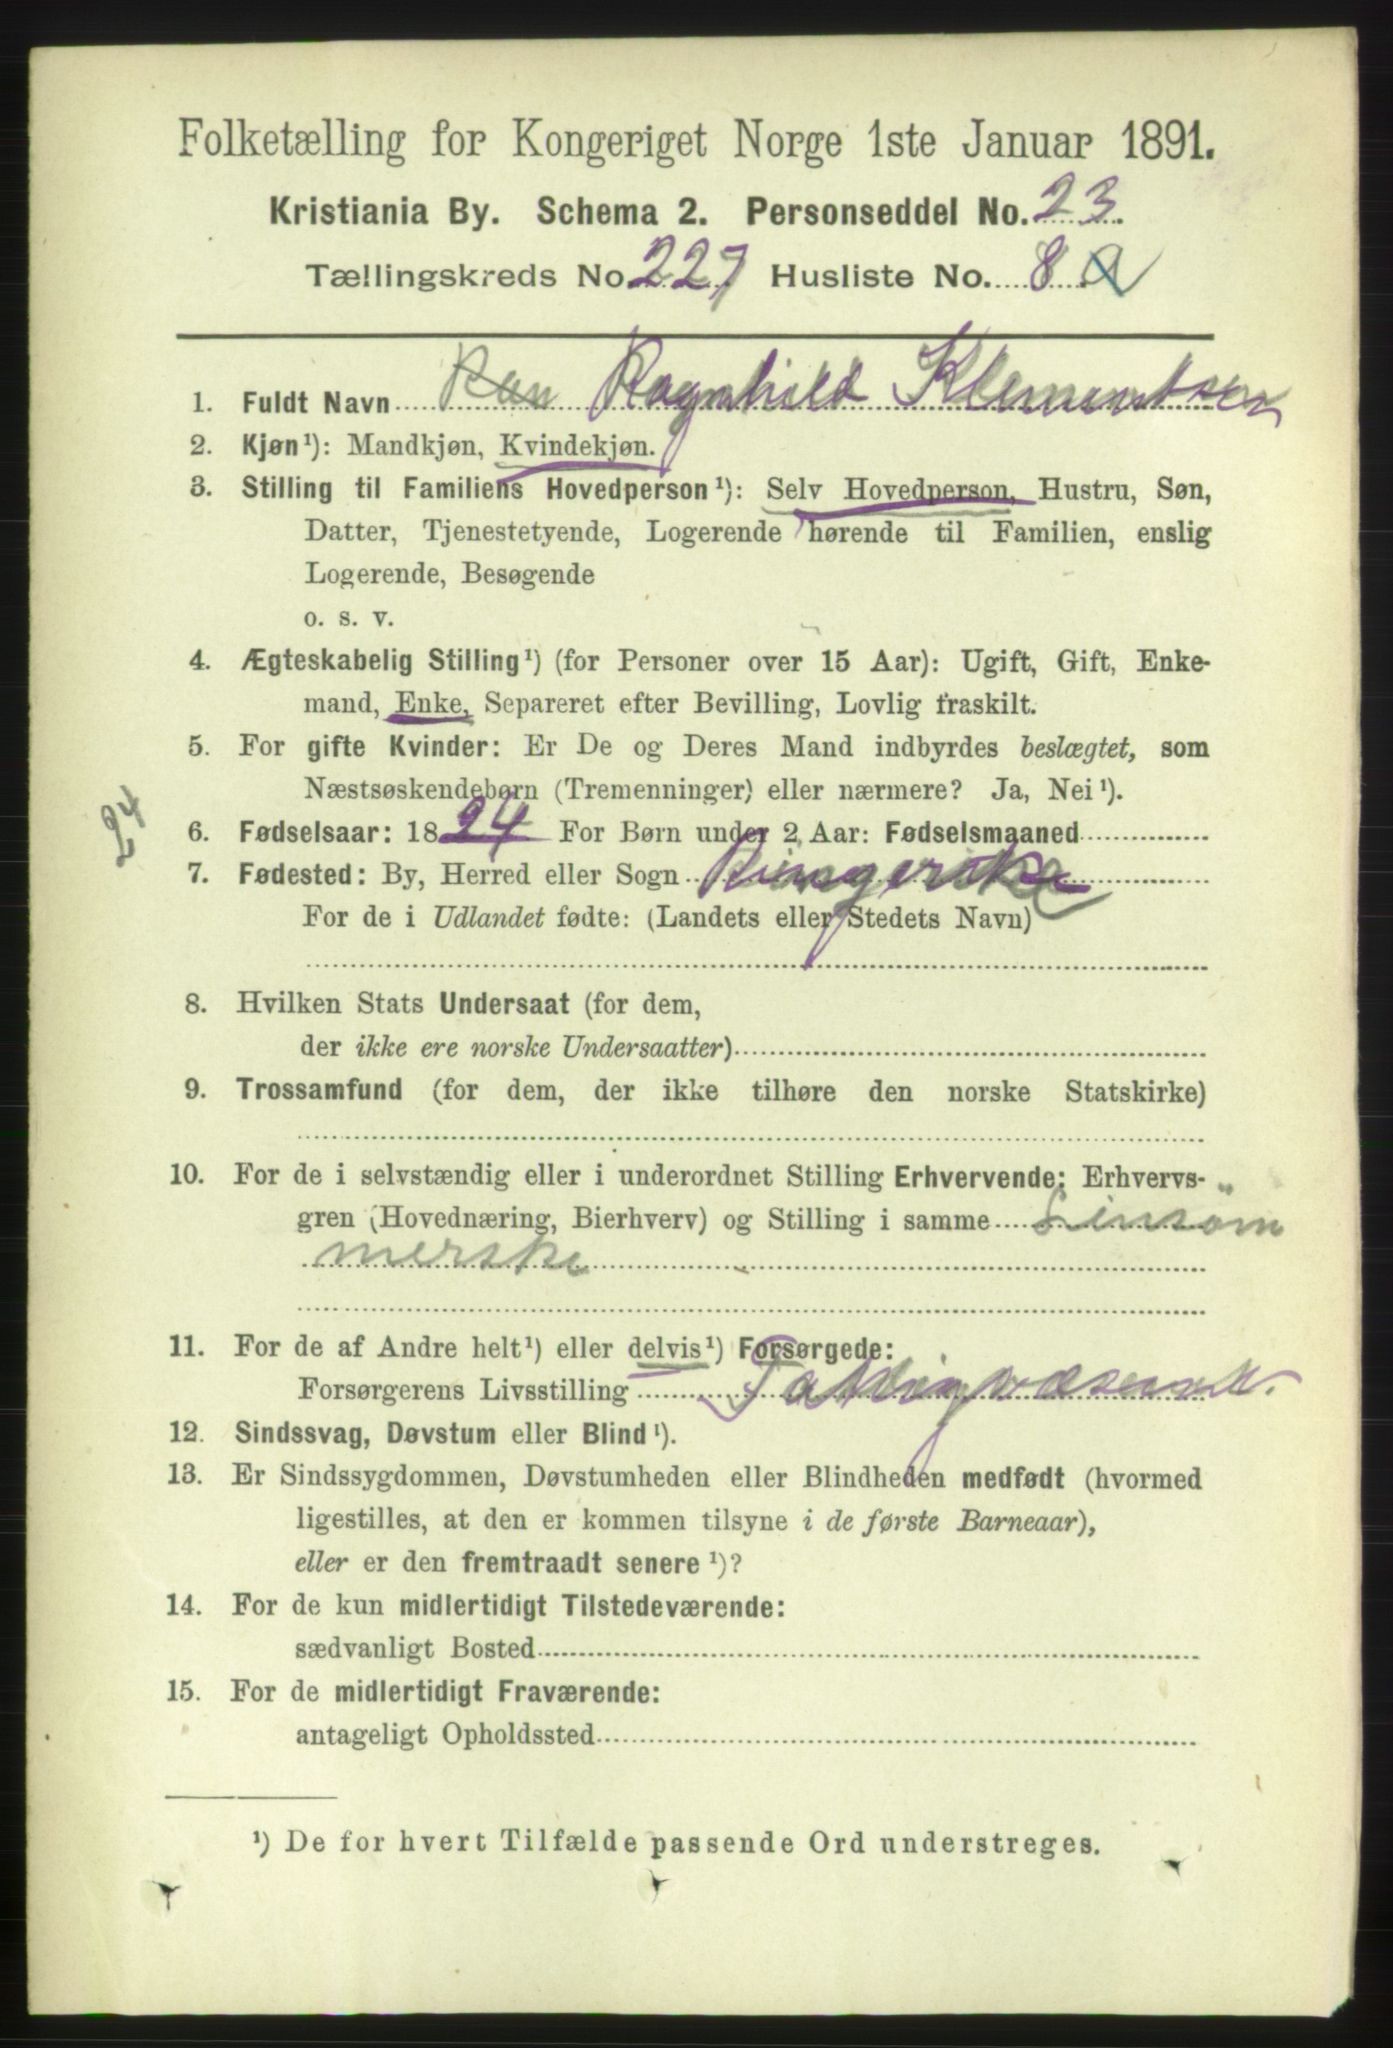 Folketælling for Kongeriget Norge 1ste Januar 1891.
Kristiania By. Schema 2. Personseddel No. 23.
Tællingskreds No. 227 Husliste No. 8
1. Fuldt Navn Ragnhild Klementsen
2. Kjøn¹): Mandkjøn, Kvindekjøn.
3. Stilling til Familiens Hovedperson¹): Selv Hovedperson, Hustru, Søn,
Datter, Tjenestetyende, Logerende hørende til Familien, enslig
Logerende, Besøgende
o. s. v.
4. Ægteskabelig Stilling¹) (for Personer over 15 Aar): Ugift, Gift, Enke-
mand, Enke, Separeret efter Bevilling, Lovlig fraskilt.
5. For gifte Kvinder: Er De og Deres Mand indbyrdes beslægtet, som
Næstsøskendebørn (Tremenninger) eller nærmere? Ja, Nei¹).
24
6. Fødselsaar: 1824 For Børn under 2 Aar: Fødselsmaaned
7. Fødested: By, Herred eller Sogn Ringerike
For de i Udlandet fødte: (Landets eller Stedets Navn)
8. Hvilken Stats Undersaat (for dem,
der ikke ere norske Undersaatter)
9. Trossamfund (for dem, der ikke tilhøre den norske Statskirke)
10. For de i selvstændig eller i underordnet Stilling Erhvervende: Erhvervs-
gren (Hovednæring, Bierhverv) og Stilling i samme Linsöm
merske
11. For de af Andre helt¹) eller delvis¹) Forsørgede:
Forsørgerens Livsstilling Fattigvæsenet.
12. Sindssvag, Døvstum eller Blind¹).
13. Er Sindssygdommen, Døvstumheden eller Blindheden medfødt (hvormed
ligestilles, at den er kommen tilsyne i de første Barneaar),
eller er den fremtraadt senere¹)?
14. For de kun midlertidigt Tilstedeværende:
sædvanligt Bosted
15. For de midlertidigt Fraværende:
antageligt Opholdssted
¹) De for hvert Tilfælde passende Ord understreges.